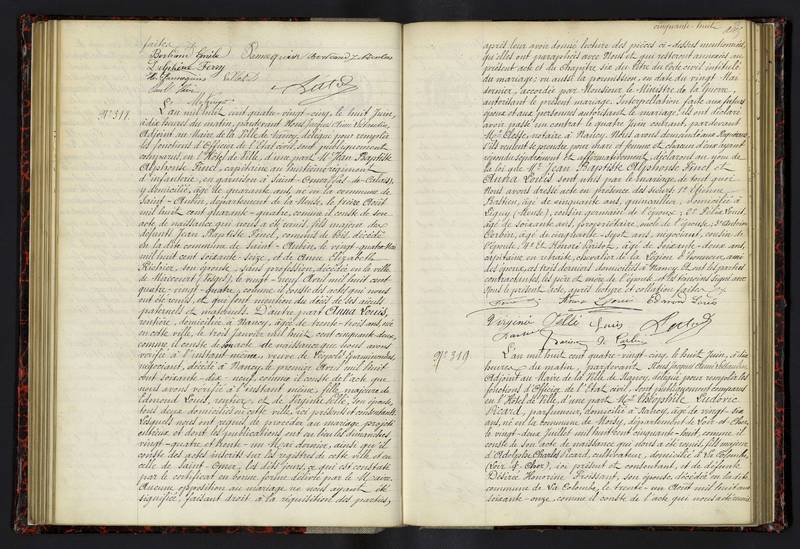 faites
Bertrand Emile
Delphine Ferry
Nº 311.
L'an mil huit cent quatre-vingt-cinq, le huit Juin,
à dix heures du matin, pardevant Nous Jacques
Adjoint au Maire de la Ville de Nancy, délégué pour remplir
les fonctions d'Officier de l'Etat civil, sont publiquement
comparus, en l'Hôtel de Ville, d'une part Mr Jean Baptiste
Alphonse Finel, capitaine au huitième régiment
d'infanterie, en garnison à Saint-Omer (Pas-de-Calais),
y domicilié, âgé de quarante ans, né en la commune de
Saint-Aubin, département de la Meuse, le treize Août
mil huit cent quarante-quatre, comme il conste de son
acte de naissance qui nous a été remis, fils majeur de
défunts Jean Baptiste Finel, décédé
en la dite commune de Saint-Aubin, le vingt-quatre Mai
mil huit cent soixante-seize, et de Anne Elizabeth
son épouse, sans profession, décédée en la ville
de Mirecourt (Vosges), le vingt-neuf Avril mil huit cent
quatre-vingt-quatre, comme il conste des actes qui nous
ont été remis, et qui font mention du décès de ses aïeuls
paternels et maternels. D'autre part Anna Louis,
rentière, domiciliée à Nancy, âgée de trente-trois ans, née
en cette ville, le trois Janvier mil huit cent cinquante-deux,
comme il conste de son acte de naissance que nous avons
vérifié à l'instant même, veuve de Léopold
négociant, décédé à Nancy, le premier Avril mil huit
cent soixante-dix-neuf, comme il conste de l'acte que
nous avons vérifié à l'instant même, fille majeure de
Edmond Louis, rentier, et de Virginie Jellé, son épouse,
tous deux domiciliés en cette ville, ici présents et consentants.
Lesquels nous ont requis de procéder au mariage projeté
entr'eux et dont les publications ont eu lieu les dimanches
vingt-quatre et trente-un Mai dernier, ainsi qu'il
conste des actes inscrits sur les registres de cette ville et en
celle de Saint-Omer, les dits jours, ce qui est constaté
par le certificat en bonne forme délivré par le Maire.
Aucune opposition au mariage ne nous ayant été
signifiée, faisant droit à la réquisition des parties,
cinquante-huit
après leur avoir donné lecture des pièces ci-dessus mentionnées,
qu'elles ont paraphées avec Nous et qui resteront annexées au
présent acte et du Chapitre six du titre du Code civil, intitulé
du mariage; vu aussi la permission, en date du vingt Mai
dernier, accordée par Monsieur le Ministre de la Guerre,
autorisant le présent mariage. Interpellation faite aux futurs
époux et aux personnes autorisant le mariage, ils ont déclaré
avoir passé un contrat le quatre Juin courant, pardevant
notaire à Nancy. Nous avons demandé aux Requérants
s'ils veulent se prendre pour mari et femme et chacun d'eux ayant
répondu séparément et affirmativement, déclarons au nom de
la loi que Mr Jean Baptiste Alphonse Finel et
Anna Louis sont unis par le mariage, de tout quoi
Nous avons dressé acte en présence des sieurs: 1º Etienne
Bastien, âgé de cinquante ans, quincaillier, domicilié à
Ligny (Meuse), cousin germain de l'époux; 2º Félix Louis,
âgé de soixante ans, propriétaire, oncle de l'épouse; 3º
Barbier, âgé de ans, négociant, cousin de
l'épouse; 4º Honoré âgé de soixante-deux ans,
capitaine en retraite, chevalier de la Légion d'honneur, ami
des époux, ces trois derniers domiciliés à Nancy. Et ont les parties
contractantes, les père et mère de l'épouse et les témoins signé avec
Nous le présent acte, après lecture et collation faites.
Anna Louis Edmond Louis
Virginie Jellé Louis
Nº 319.
L'an mil huit cent quatre-vingt-cinq, le huit Juin, à dix
heures du matin, pardevant Nous Jacques
Adjoint au Maire de la Ville de Nancy, délégué pour remplir les
fonctions d'Officier de l'Etat civil, sont publiquement comparus
en l'Hôtel de Ville, d'une part Mr Théophile Ludovic
Picard, parfumeur, domicilié à Nancy, âgé de vingt-six
ans, né en la commune de département de Loir-et-Cher,
le vingt-deux Juillet mil huit cent cinquante-huit, comme il
conste de son acte de naissance qui nous a été remis, fils majeur
d'Adolphe Charles Picard, cultivateur, domicilié à La Colombe,
(Loir-et-Cher), ici présent et consentant, et de défunte
Désirée Honorine Froissant, son épouse, décédée en la dite
commune de La Colombe, le trente-un Août mil huit cent
soixante-onze, comme il conste de l'acte qui nous a été remis